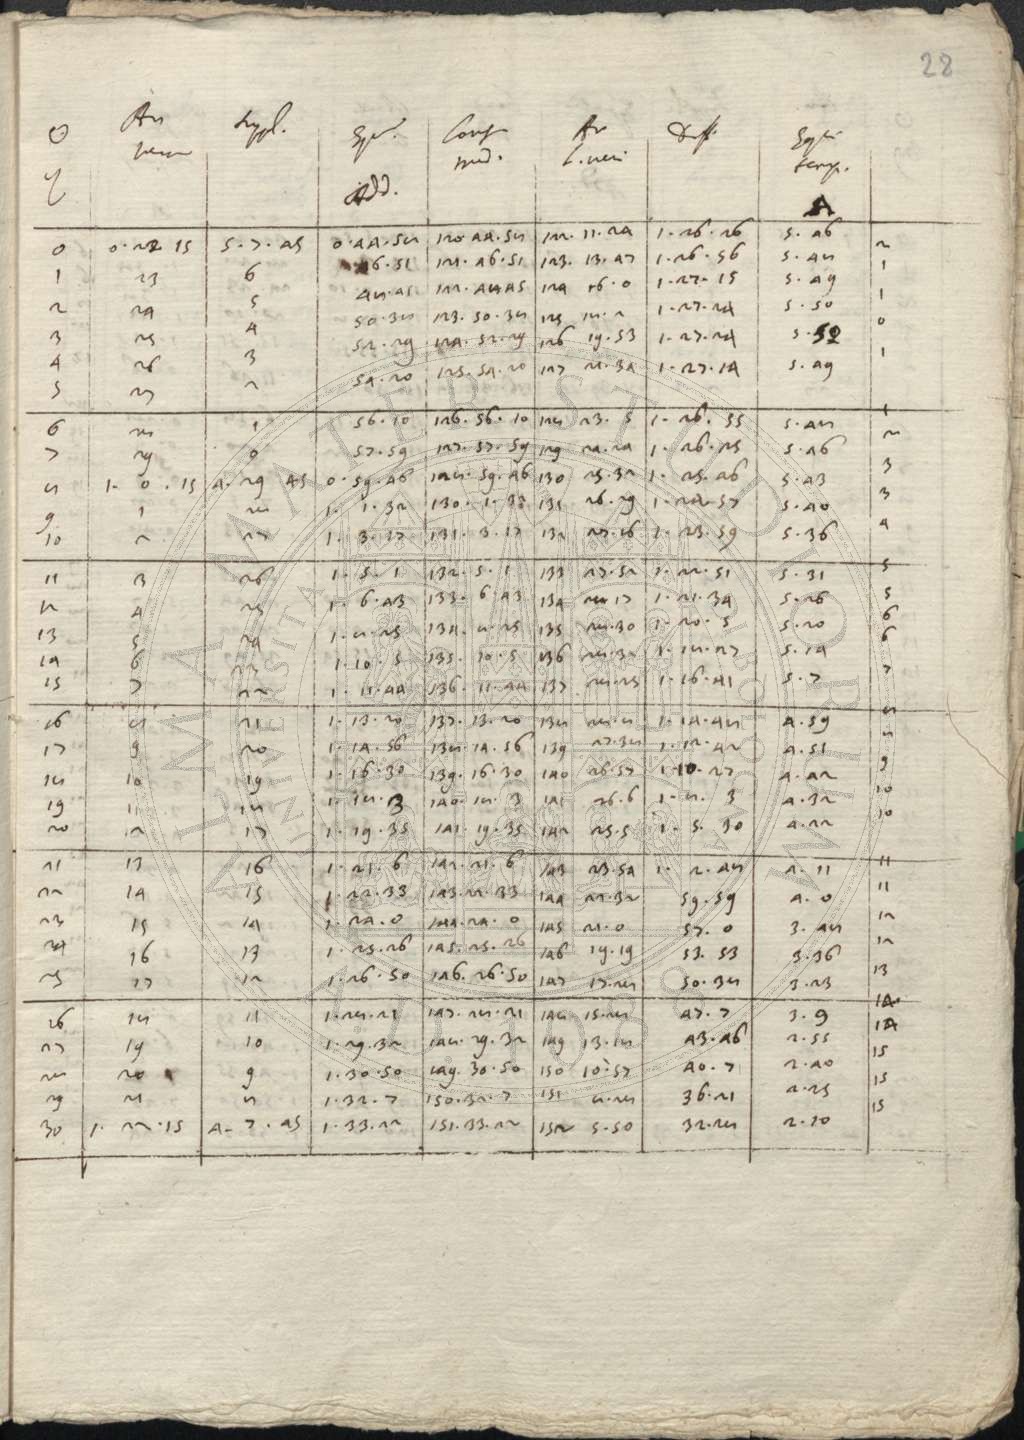 28
An Suppl. Equ. Conf Ar Diff Equ
verum med. L. veri temp.
Add. A
0 0.22.15 5.7.45 0.44.58 120.44.58 122.11.24 1.26.26 5.46
2
1 23 6 46.51 121.46.51 123.13.47 1.26.56 5.48
1
2 24 5 48.45 122.48.45 124 16.0 1.27.15 5.49
1
3 25 4 50.38 123.50.38 125 18.2 1.27.24 5.50
0
4 26 3 52.29 124.52.29 126 19.53 1.27.24 5.50
1
5 27 2 54.20 125.54.20 127 21.34 1.27.14 5.49
1
6 28 1 56.10 126.56.10 128 23.5 1.26.55 5.48
2
7 29 0 57.59 127.57.59 129 24.24 1.26.25 5.46
3
8 1.0.15 4.29.45 0.59.46 128.59.46 130 25.32 1.25.46 5.43
3
9 1 28 1.1.32 130.1.32 131 26.29 1.24.57 5.40
4
10 2 27 1.3.17 131.3.17 132 27.16 1.23.59 5.36
5
11 3 26 1.5.1 132.5.1 133 27.52 1.22.51 5.31
5
12 4 25 1.6.43 133.6.43 134 28.17 1.21.34 5.26
6
13 5 24 1.8.25 134.8.25 135 28.30 1.20.5 5.20
6
14 6 23 1.10.5 135.10.5 136 28.32 1.18.27 5.14
7
15 7 22 1.11.44 136.11.44 137 28.25 1.16.41 5.7
8
16 8 21 1.13.20 137.13.20 138 28.8 1.14.48 4.59
8
17 9 20 1.14.56 138.14.56 139 27.38 1.12.42 4.51
9
18 10 19 1.16.30 139.16.30 140 26.57 1.10.27 4.42
10
19 11 18 1.18.3 140.18.3 141 26.6 1.8.3 4.32
10
20 12 17 1.19.35 141.19.35 142 25.5 1.5.30 4.22
11
21 13 16 1.21.6 142.21.6 143 23.54 1.2.48 4.11
11
22 14 15 1.22.33 143.22.33 144 22.32 59.59 4.0
12
23 15 14 1.24.0 144.24.0 145 21.0 57.0 3.48
12
24 16 13 1.25.26 145.25.26 146 19.19 53.53 3.36
13
25 17 12 1.26.50 146.26.50 147 17.28 50.38 3.23
14
26 18 11 1.28.21 147.28.21 148 15.28 47.7 3.9
14
27 19 10 1.29.32 148.29.32 149 13.18 43.46 2.55
15
28 20 9 1.30.50 149.30.50 150 10.57 40.7 2.40
15
29 21 8 1.32.7 150.32.7 151 8.28 36.21 2.25
15
30 1.22.15 4.7.45 1.33.22 151.33.22 152 5.50 32.28 2.10